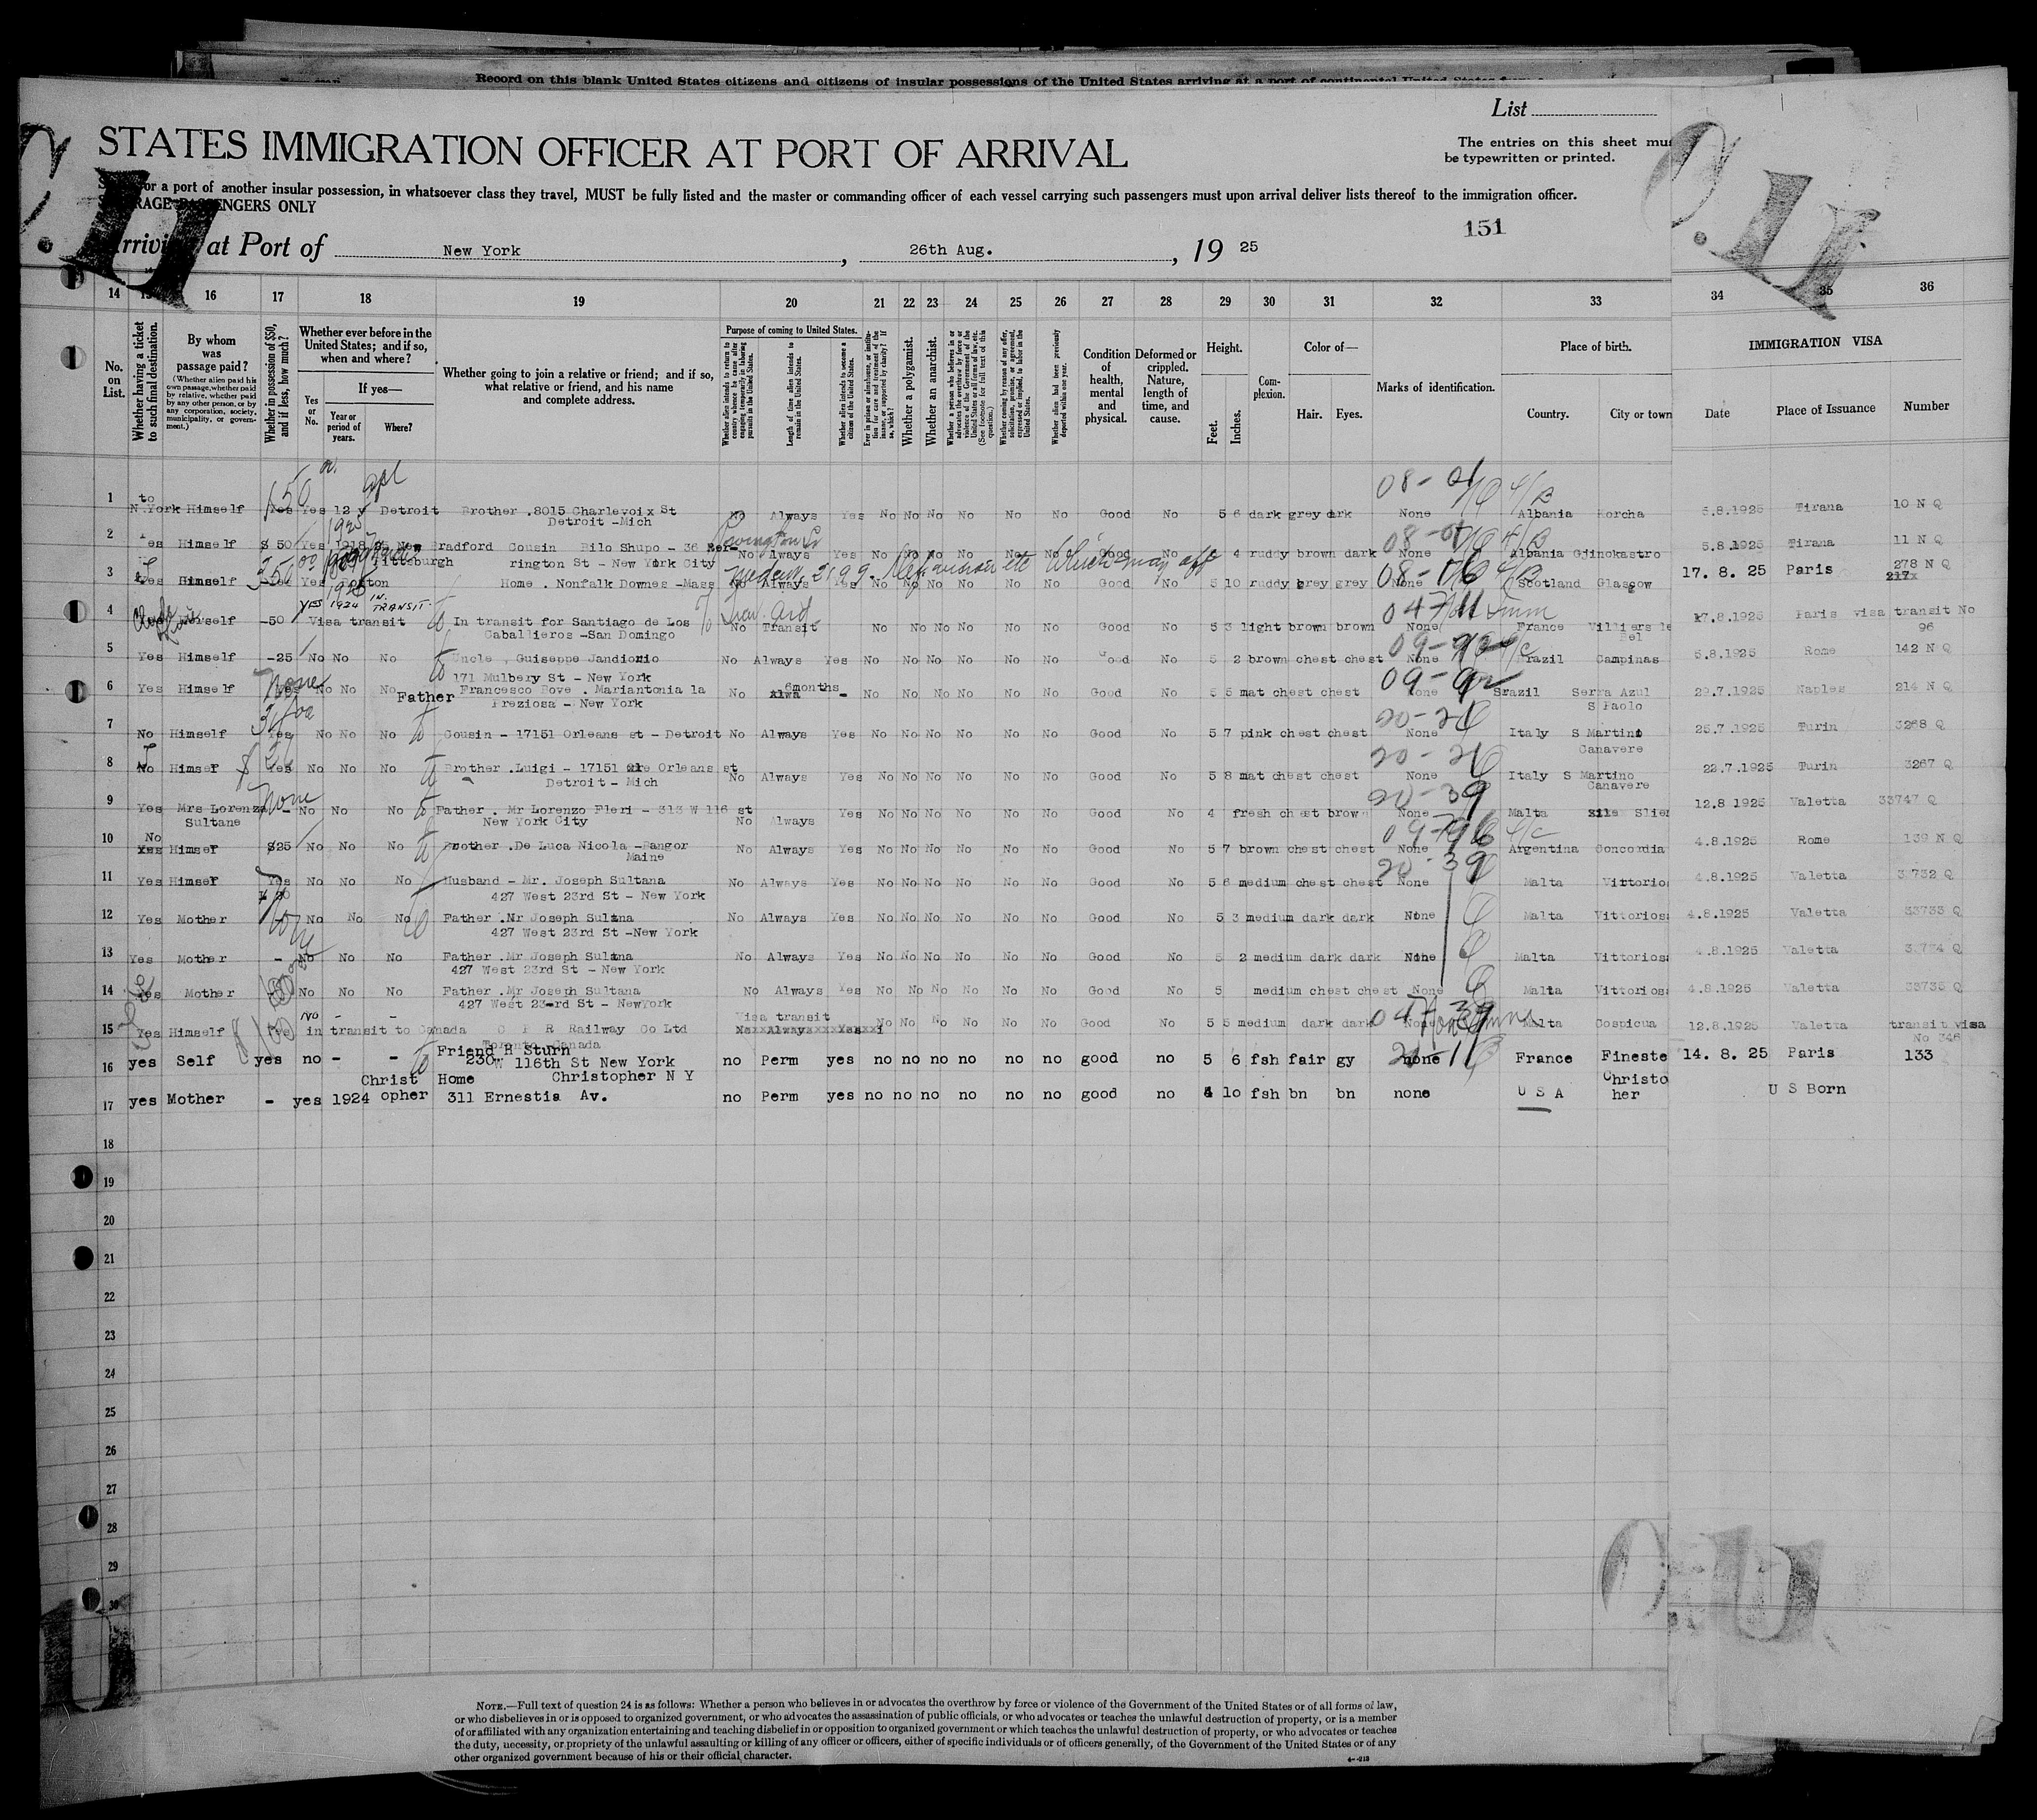 Record on this blank United States citizens and citizens of insular possessions of the United States arriving at a port of continental United States
List
STATES IMMIGRATION OFFICER AT PORT OF ARRIVAL
The entries on this sheet mu
be typewritten or printed.
or a port of another insular possession, in whatsoever class they travel, MUST be fully listed and the master or commanding officer of each vessel carrying such passengers must upon arrival deliver lists thereof to the immigration officer.
PASSENGERS ONLY
151
at Port of New York, 26th Aug., 19 25
14 16 17 18 19 20 21 22 23 24 25 26 27 28 29 30 31 32 33 34 35 36
No. on List.
Whether having a ticket to such final destination.
By whom was passage paid?
(Whether alien paid his own passage, whether paid by relative, whether paid by any other person, or by any corporation, society, municipality, or government.)
Whether in possession of $50, and if less, how much?
Whether ever before in the United States; and if so, when and where?
Yes or No.
If yes—
Year or period of years.
Where?
Whether going to join a relative or friend; and if so, what relative or friend, and his name and complete address.
Purpose of coming to United States.
Whether alien intends to return to country whence he came after engaging temporarily in laboring pursuits in the United States.
Length of time alien intends to remain in the United States.
Whether alien intends to become a citizen of the United States.
Ever in prison or almshouse, or institution for care and treatment of the insane, or supported by charity? If so, which?
Whether a polygamist.
Whether an anarchist.
Whether a person who believes in or advocates the overthrow by force or violence of the Government of the United States or all forms of law, etc. (See footnote for full text of this question.)
Whether coming by reason of any offer, solicitation, promise, or agreement, expressed or implied, to labor in the United States.
Whether alien had been previously deported within one year.
Condition of health, mental and physical.
Deformed or crippled. Nature, length of time, and cause.
Height.
Feet. Inches.
Complexion.
Color of—
Hair. Eyes.
Marks of identification.
Place of birth.
Country. City or town
IMMIGRATION VISA
Date Place of Issuance Number
1 to N.York Himself Yes Yes 12 y Detroit Brother .8015 Charlevoix St No Always Yes No No No No No No Good No 5 6 dark grey dark None Albania Korcha 5.8.1925 Tirana 10 N Q
Detroit -Mich
2 Yes Himself $ 50 Yes 1918 New Bradford Cousin Bilo Shupo - 36 No Always Yes No No No No No No Good No 4 ruddy brown dark None Albania Gjinokastro 5.8.1925 Tirana 11 N Q
Pittsburgh rington St - New York City
3 Yes Himself Yes Yes Boston Home . Nonfalk Downes -Mass No Always Yes No No No No No No Good No 5 10 ruddy grey grey None Scotland Glasgow 17. 8. 25 Paris 278 N Q
4 Himself -50 YES 1924 IN TRANSIT. In transit for Santiago de Los No Transit No No No No No No Good No 5 3 light brown brown None France Villiers le 17.8.1925 Paris visa transit No
Visa transit Caballieros -San Domingo Bel 96
5 Yes Himself -25 No No No Uncle , Guiseppe Jandiorio No Always Yes No No No No No No Good No 5 2 brown chest chest None Brazil Campinas 5.8.1925 Rome 142 N Q
171 Mulbery St - New York
6 Yes Himself Yes No No No Father Francesco Bove . Mariantonia la No 6months - No No No No No No Good No 5 5 mat chest chest None Brazil Serra Azul 22.7.1925 Naples 214 N Q
Preziosa - New York S Paolo
7 No Himself Yes No No No Cousin - 17151 Orleans st - Detroit No Always Yes No No No No No No Good No 5 7 pink chest chest None Italy S Martino 25.7.1925 Turin 3268 Q
Canavere
8 No Himsef Yes No No No Brother .Luigi - 17151 Orleans st No Always Yes No No No No No No Good No 5 8 mat chest chest None Italy S Martino 22.7.1925 Turin 3267 Q
Detroit - Mich Canavere
9 Yes Mrs Lorenza - None No No No Father . Mr Lorenzo Fleri - 313 W 116 st No Always Yes No No No No No No Good No 4 fresh chest brown None Malta Slie 12.8 1925 Valetta 33747 Q
Sultane New York City
10 No Himsef $25 No No No Brother .De Luca Nicola -Bangor No Always Yes No No No No No No Good No 5 7 brown chest chest None Argentina Concordia 4.8.1925 Rome 139 N Q
Maine
11 Yes Himsef Yes No No No Husband - Mr. Joseph Sultana No Always Yes No No No No No No Good No 5 6 medium chest chest None Malta Vittorio 4.8.1925 Valetta 33732 Q
427 West 23rd St - New York
12 Yes Mother No No No Father .Mr Joseph Sultna No Always Yes No No No No No No Good No 5 3 medium dark dark None Malta Vittorios 4.8.1925 Valetta 33733 Q
427 West 23rd St -New York
13 Yes Mother - No No No Father .Mr Joseph Sultna No Always Yes No No No No No No Good No 5 2 medium dark dark None Malta Vittorios 4.8.1925 Valetta 33734 Q
427 West 23rd St - New York
14 Yes Mother - No No No Father .Mr Joseph Sultana No Always Yes No No No No No No Good No 5 medium chest chest None Malta Vittorios 4.8.1925 Valetta 33735 Q
427 West 23-rd St - NewYork
15 Yes Himself Yes NO - - in transit to Canada C P R Railway Co Ltd Visa transit No No No No No No Good No 5 5 medium dark dark None Malta Cospicua 12.8.1925 Valetta transit visa
Toronto Canada No 346
16 yes Self yes no - - Friend H Sturn no Perm yes no no no no no no good no 5 6 fsh fair gy none France Fineste 14. 8. 25 Paris 133
230 W 116th St New York
17 yes Mother - yes 1924 Christopher Home Christopher N Y no Perm yes no no no no no no good no 4 10 fsh bn bn none U S A Christo her U S Born
311 Ernestia Av.
18
19
20
21
22
23
24
25
26
27
28
29
30
NOTE.—Full text of question 24 is as follows: Whether a person who believes in or advocates the overthrow by force or violence of the Government of the United States or of all forms of law,
or who disbelieves in or is opposed to organized government, or who advocates the assassination of public officials, or who advocates or teaches the unlawful destruction of property, or is a member
of or affiliated with any organization entertaining and teaching disbelief in or opposition to organized government or which teaches the unlawful destruction of property, or who advocates or teaches
the duty, necessity, or propriety of the unlawful assaulting or killing of any officer or officers, either of specific individuals or of officers generally, of the Government of the United States or of any
other organized government because of his or their official character.